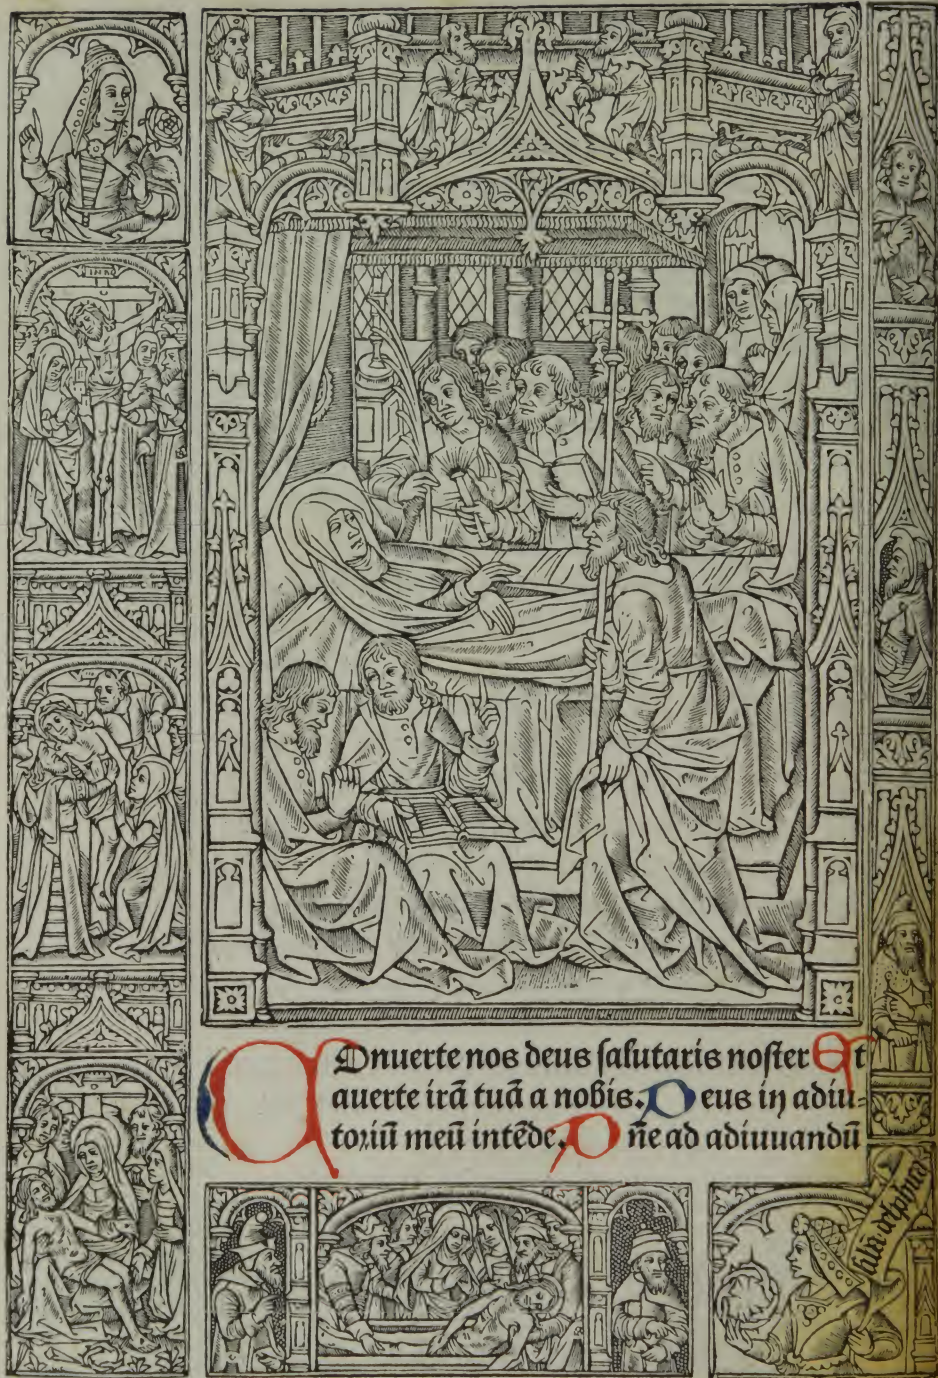 INRI
COnuerte nos deus salutaris noster Et
auerte irā tuā a nobis. Deus in adiu-
toriū meū intēde. Dñe ad adiuuandū